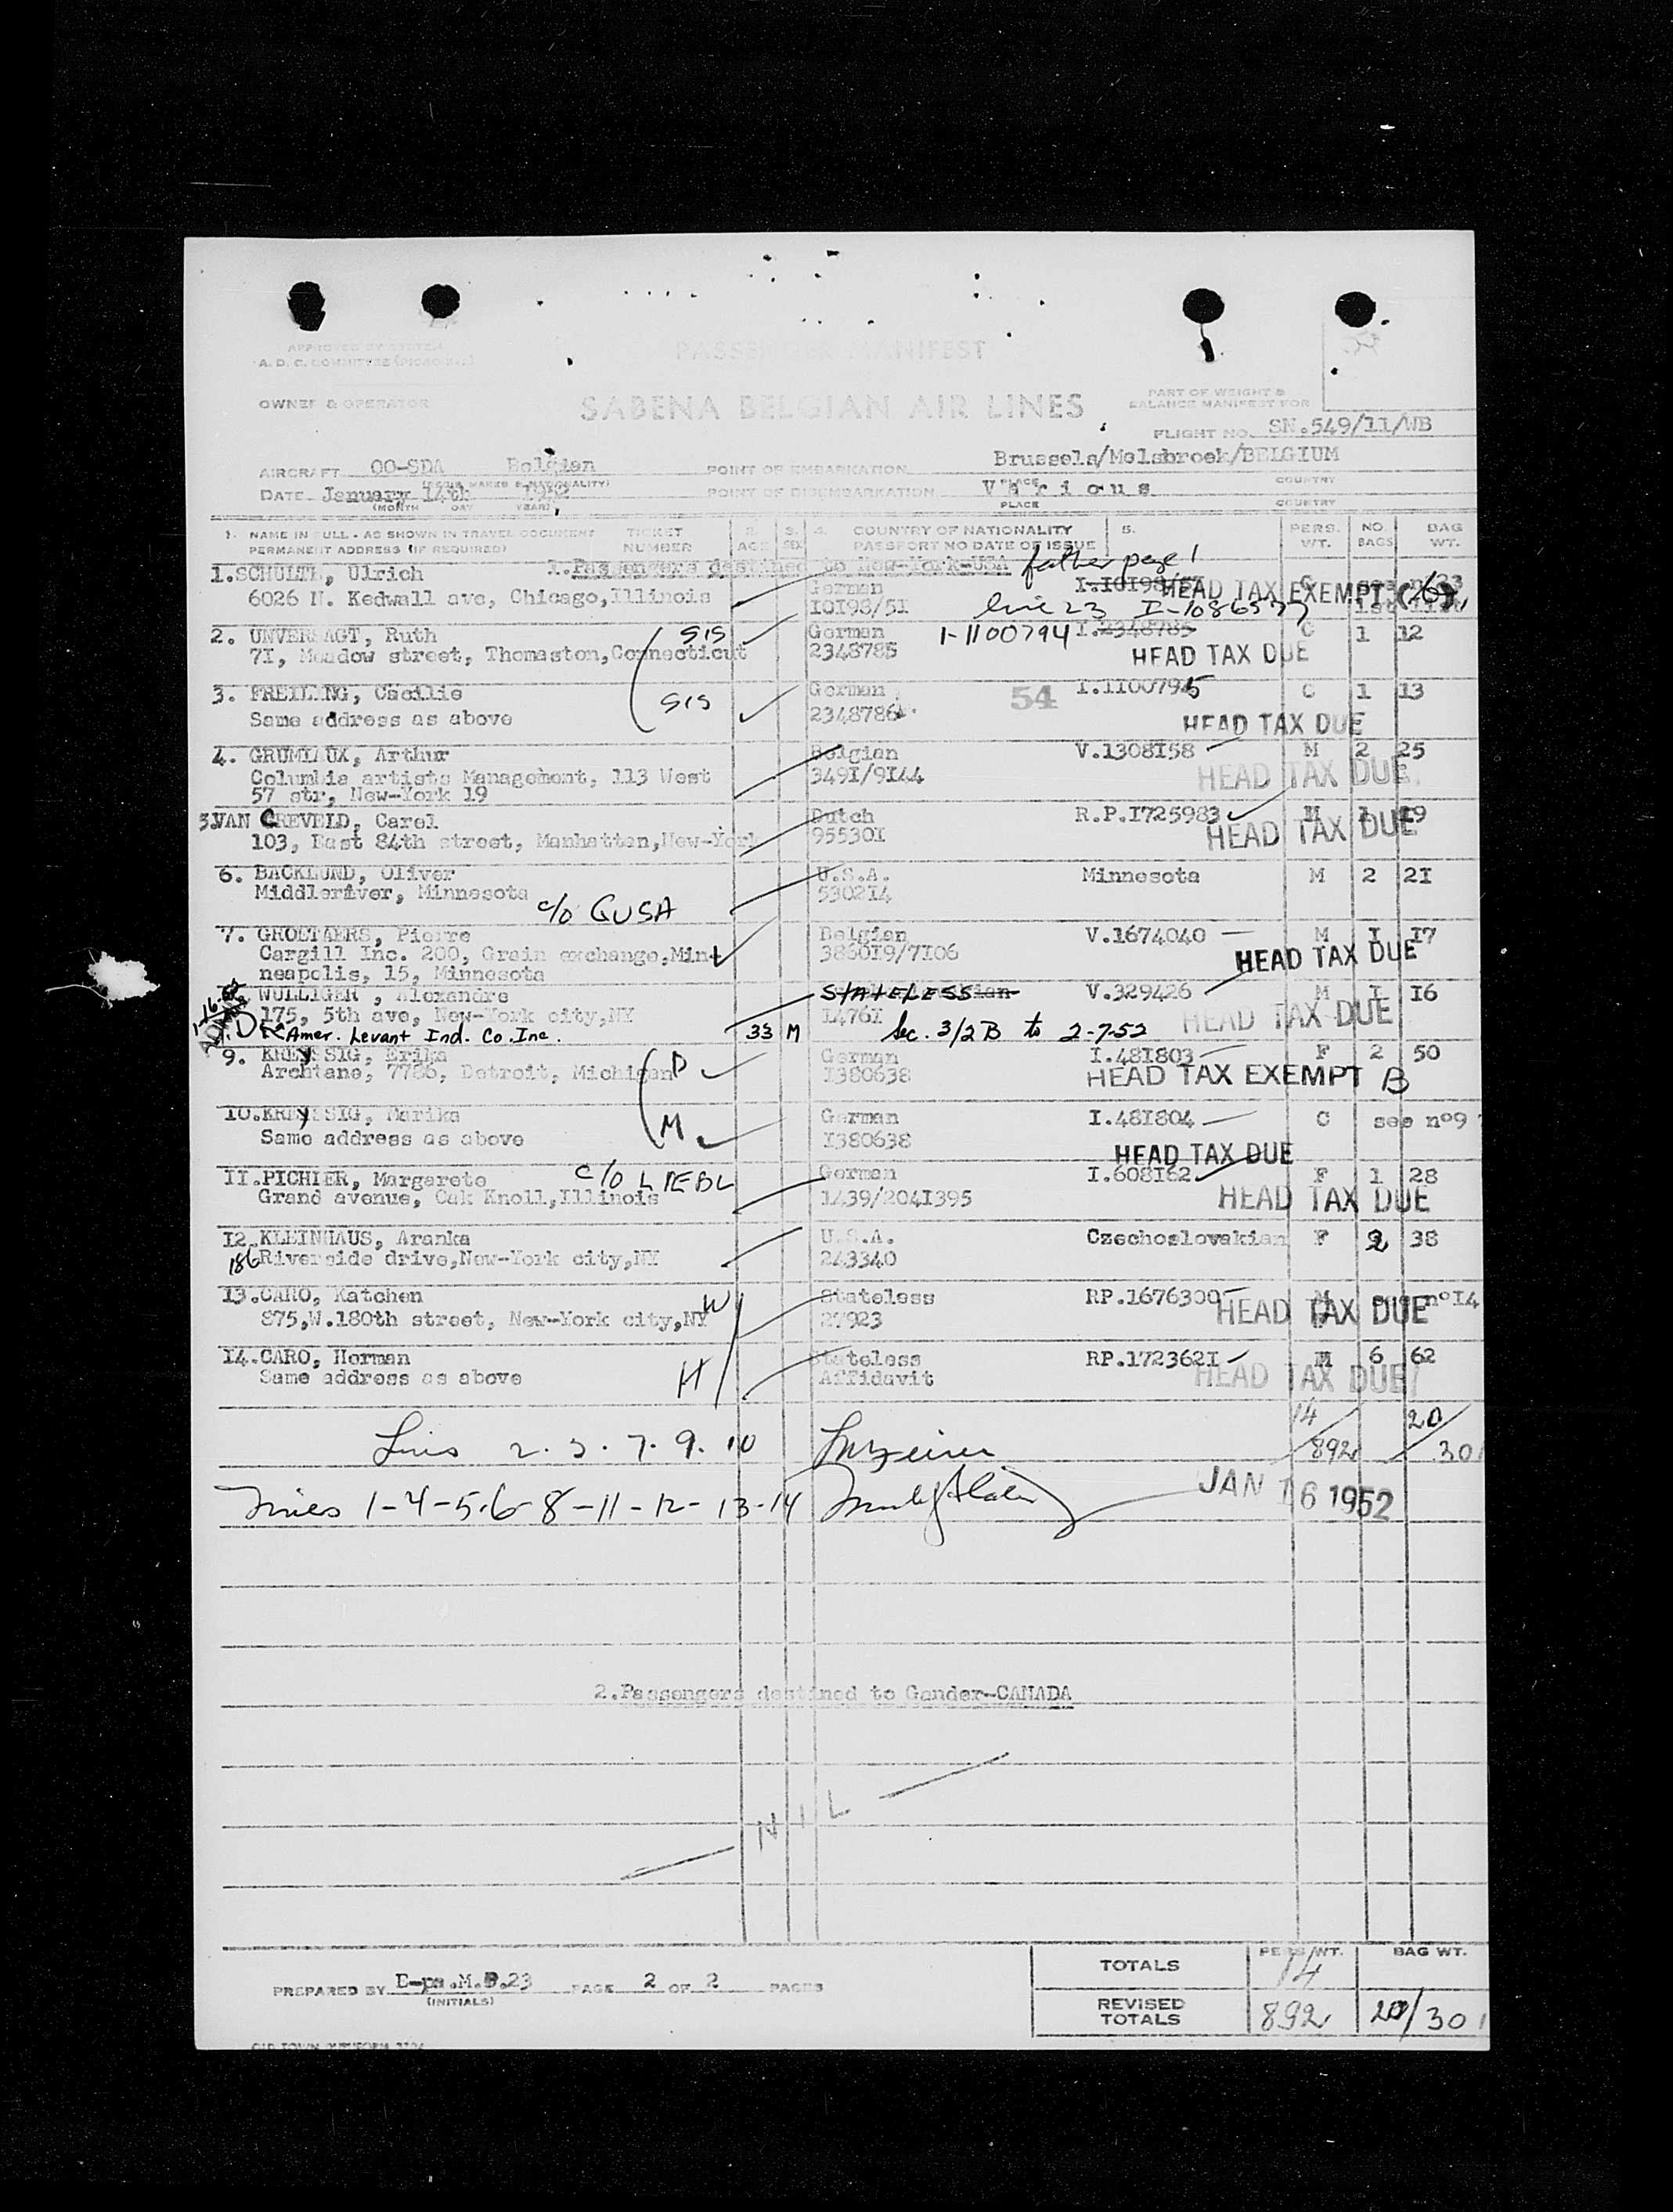 APPROVED BY SYSTEM
A. D. C. COMMITTEE
PASSENGER MANIFEST
OWNER & OPERATOR
SABENA BELGIAN AIR LINES
PART OF WEIGHT &
BALANCE MANIFEST FOR
FLIGHT NO. SN.549/11/WB
AIRCRAFT OO-SDA Belgian
POINT OF EMBARKATION Brussels/Melsbroek/BELGIUM
DATE January 14th 1952
(MONTH DAY YEAR)
POINT OF DISEMBARKATION Various
PLACE COUNTRY
PLACE COUNTRY
1. NAME IN FULL - AS SHOWN IN TRAVEL DOCUMENT TICKET 2. 3. 4. COUNTRY OF NATIONALITY 5. PERS. NO. BAG
PERMANENT ADDRESS (IF REQUIRED) NUMBER AGE SEX PASSPORT NO DATE OF ISSUE WT. BAGS WT.
1.Passengers destined to New-York-USA father page 1
1.SCHULTE, Ulrich German I.10198/51 HEAD TAX EXEMPT
6026 N. Kedwall ave, Chicago,Illinois I0I98/5I line 23 I-1086577
2. UNVERSAGT, Ruth SIS German 1-1100794 I.2348785 C 1 12
7I, Meadow street, Thomaston,Connecticut 2348785 HEAD TAX DUE
3. FREILING, Caecilie SIS German 54 I.1100795 C 1 13
Same address as above 2348786 HEAD TAX DUE
4. GRUMIAUX, Arthur Belgian V.1308I58 M 2 25
Columbia artists Management, 113 West 349I/9I44 HEAD TAX DUE
57 str, New-York 19
5.VAN CREVELD, Carel Dutch R.P.I725983 M 1 19
103, East 84th street, Manhatten,New-York 95530I HEAD TAX DUE
6. BACKLUND, Oliver U.S.A. Minnesota M 2 2I
Middleriver, Minnesota 5302I4
c/o GUSA
7. GROETAERS, Pierre Belgian V.1674040 M I I7
Cargill Inc. 200, Grain exchange,Min- 3860I9/7I06 HEAD TAX DUE
neapolis, 15, Minnesota
WULLIGER, Alexandre STATELESS V.329426 M I I6
175, 5th ave, New-York city,NY I476I HEAD TAX DUE
Amer. Levant Ind. Co. Inc. 33 M Sec. 3/2B to 2-7-52
9. KREYSSIG, Erika D German I.481803 F 2 50
Archtane, 7786, Detroit, Michigan I380638 HEAD TAX EXEMPT B
10.KREYSSIG, Marika M German I.48I804 C see nº9
Same address as above I380638 HEAD TAX DUE
II.PICHLER, Margarete c/o LIEBL German I.608I62 F 1 28
Grand avenue, Oak Knoll,Illinois 1439/204I395 HEAD TAX DUE
I2.KLEINHAUS, Aranka U.S.A. Czechoslovakian F 2 38
186 Riverside drive,New-York city,NY 243340
13.CARO, Katchen W Stateless RP.1676300 see nº14
875,W.180th street, New-York city,NY 27923 HEAD TAX DUE
I4.CARO, Herman H Stateless RP.172362I M 6 62
Same address as above Affidavit HEAD TAX DUE
14/892 20/301
Lines 2-3-7-9-10
Lines 1-4-5-6-8-11-12-13-14 JAN 16 1952
2.Passengers destined to Gander-CANADA
NIL
PERS WT. BAG WT.
TOTALS 14
PREPARED BY E-pa.M.D.23 PAGE 2 OF 2 PAGES
(INITIALS)
REVISED TOTALS 892 20/301